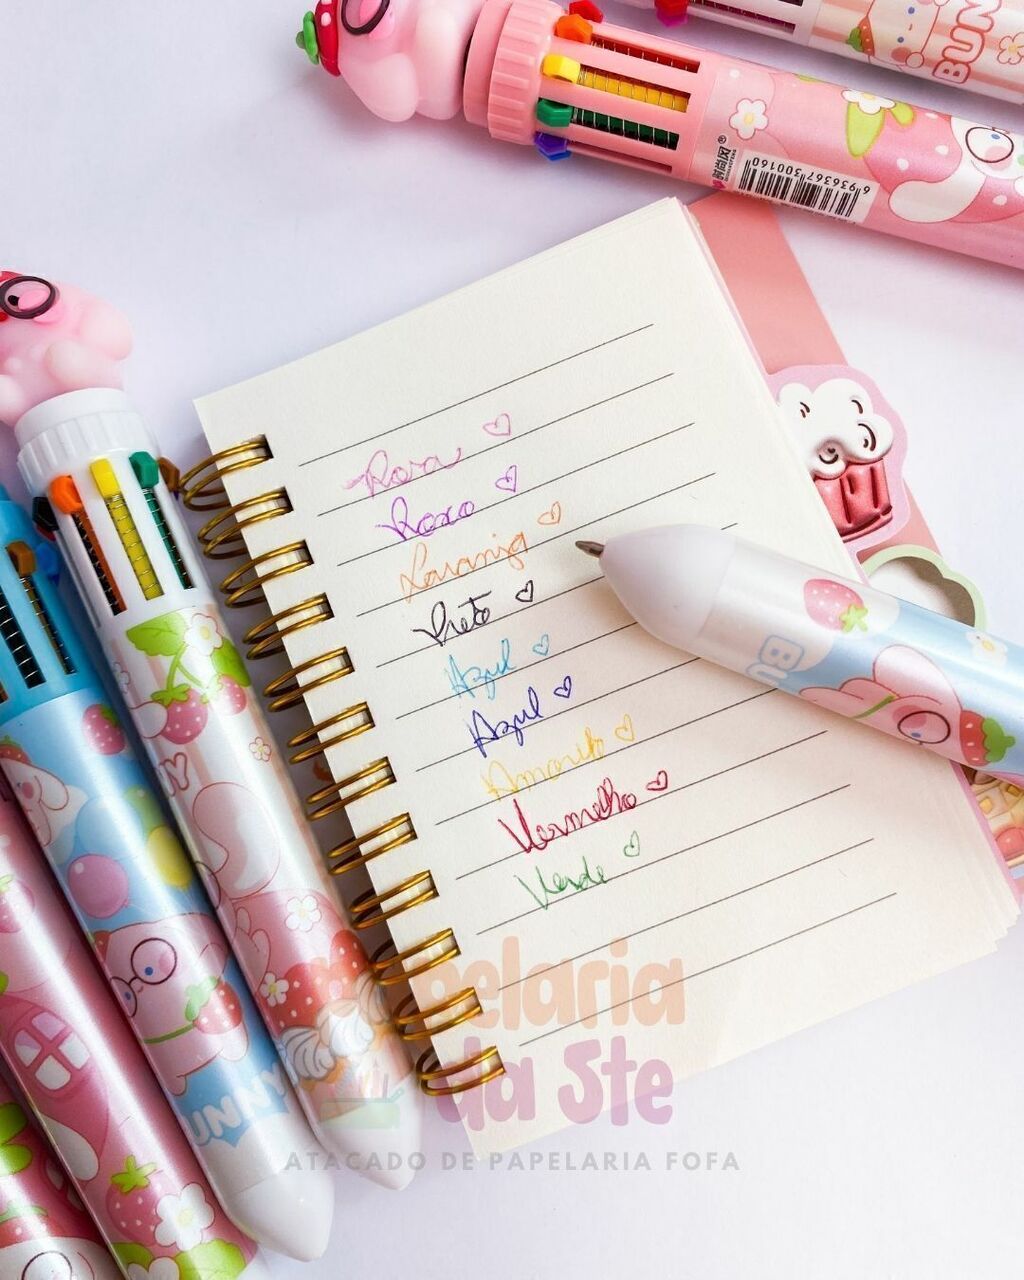 BUN
时尚风
6936367300160
Rosa
Roxo
Laranja
Preto
Azul
Azul
Amarelo
Vermelho
Verde
BU
NNY
Papelaria
da Ste
ATACADO DE PAPELARIA FOFA